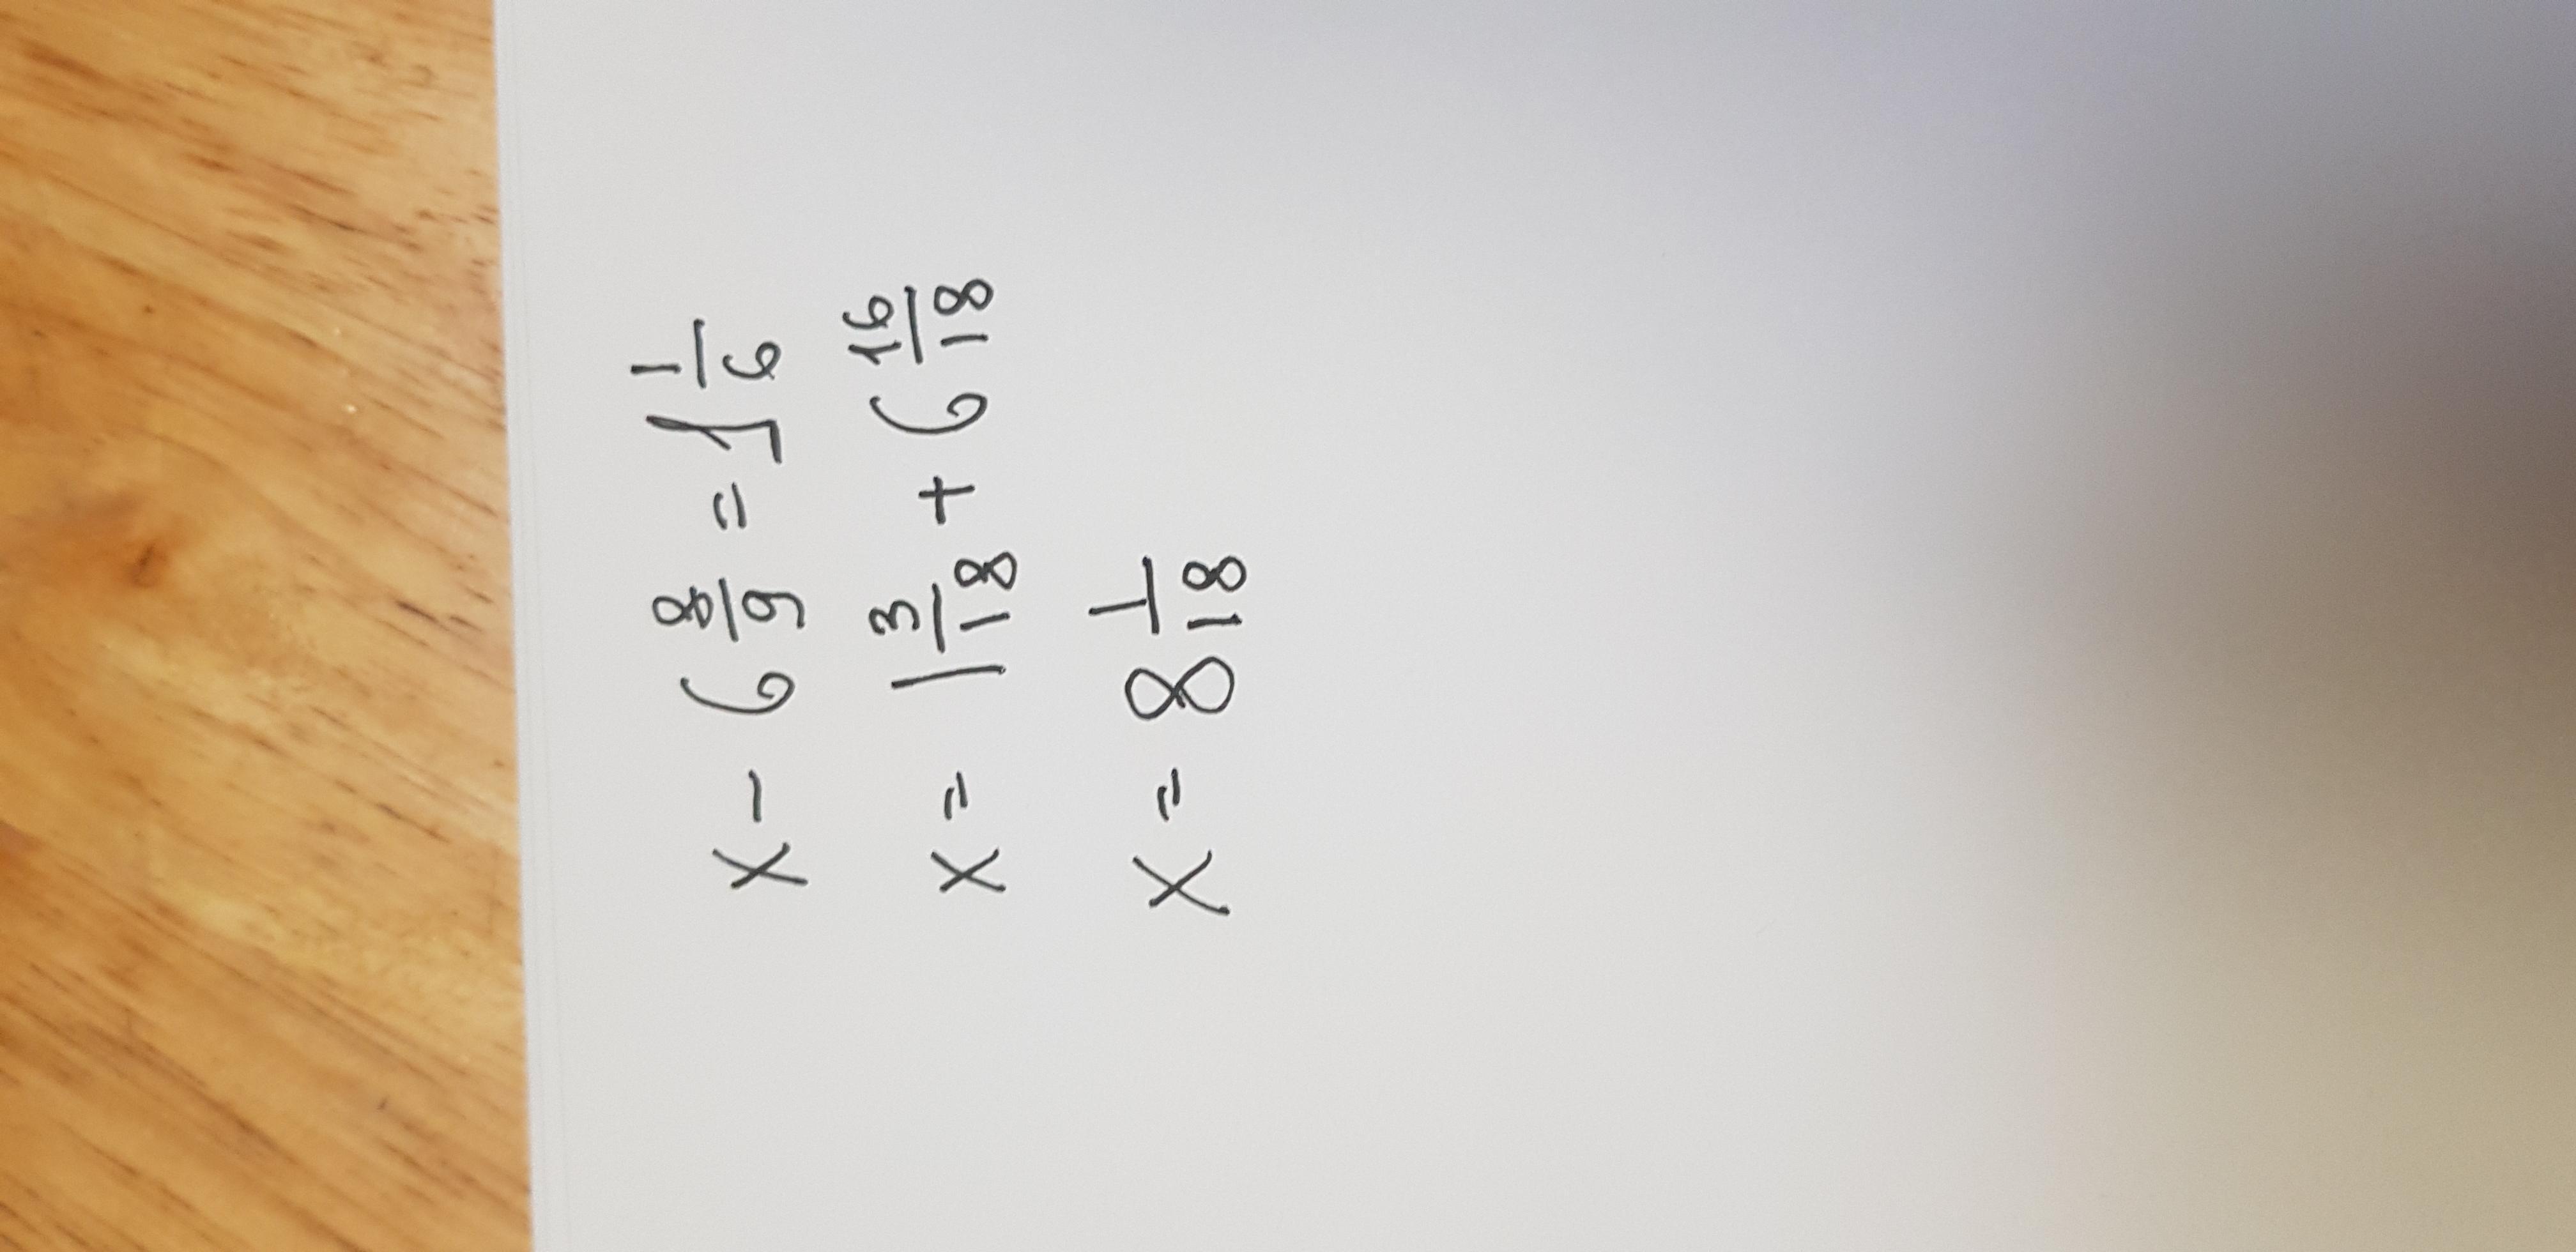 x - 6 8/9 = 1 1/6
x = 1 3/18 + 6 16/18
x = 8 1/18